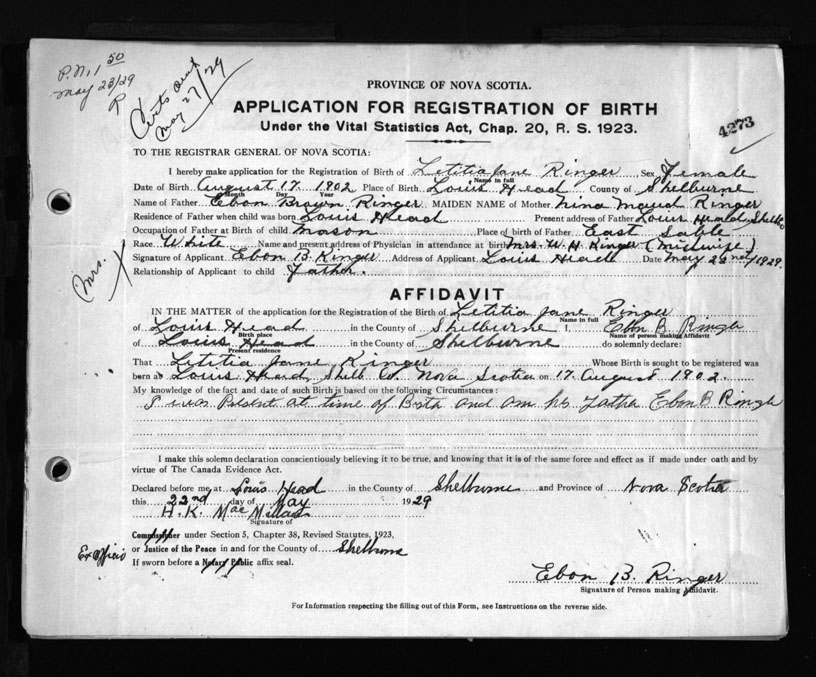 P.N. 1 50
May 23/29
R
Certs sent
May 27/29
PROVINCE OF NOVA SCOTIA.
APPLICATION FOR REGISTRATION OF BIRTH
Under the Vital Statistics Act, Chap. 20, R. S. 1923.
4273
TO THE REGISTRAR GENERAL OF NOVA SCOTIA:
I hereby make application for the Registration of Birth of Letitia Jane Ringer Sex Female
Name in full
Date of Birth August 17. 1902 Place of Birth Louis Head County of Shelburne
Month Day Year
Name of Father Ebon Brown Ringer MAIDEN NAME of Mother Nina Maud Ringer
Residence of Father when child was born Louis Head Present address of Father Louis Head Shelb Co
Occupation of Father at Birth of child Mason Place of birth of Father East Sable
Race White Name and present address of Physician in attendance at birth Mrs. W. H. Ringer (Midwife)
Signature of Applicant Ebon B. Ringer Address of Applicant Louis Head Date May 22nd/1929.
Relationship of Applicant to child Father.
Mrs.
AFFIDAVIT
IN THE MATTER of the application for the Registration of the Birth of Letitia Jane Ringer
Name in full
of Louis Head in the County of Shelburne I, Ebon B Ringer
Birth place Name of person making Affidavit
of Louis Head in the County of Shelburne do solemnly declare:
Present residence
That Letitia Jane Ringer Whose Birth is sought to be registered was
born at Louis Head, Shelb Co, Nova Scotia on 17 August 1902.
My knowledge of the fact and date of such Birth is based on the following Circumstances:
I was Present at time of Birth and am his Father Ebon B Ringer
I make this solemn declaration conscientiously believing it to be true, and knowing that it is of the same force and effect as if made under oath and by
virtue of The Canada Evidence Act.
Declared before me at Louis Head in the County of Shelburne and Province of Nova Scotia
this 22nd day of May 1929
H. K. MacMillan
Signature of
Commissioner under Section 5, Chapter 38, Revised Statutes, 1923,
Ex Officio or Justice of the Peace in and for the County of Shelburne
If sworn before a Notary Public affix seal.
Ebon B. Ringer
Signature of Person making Affidavit.
For Information respecting the filling out of this Form, see Instructions on the reverse side.